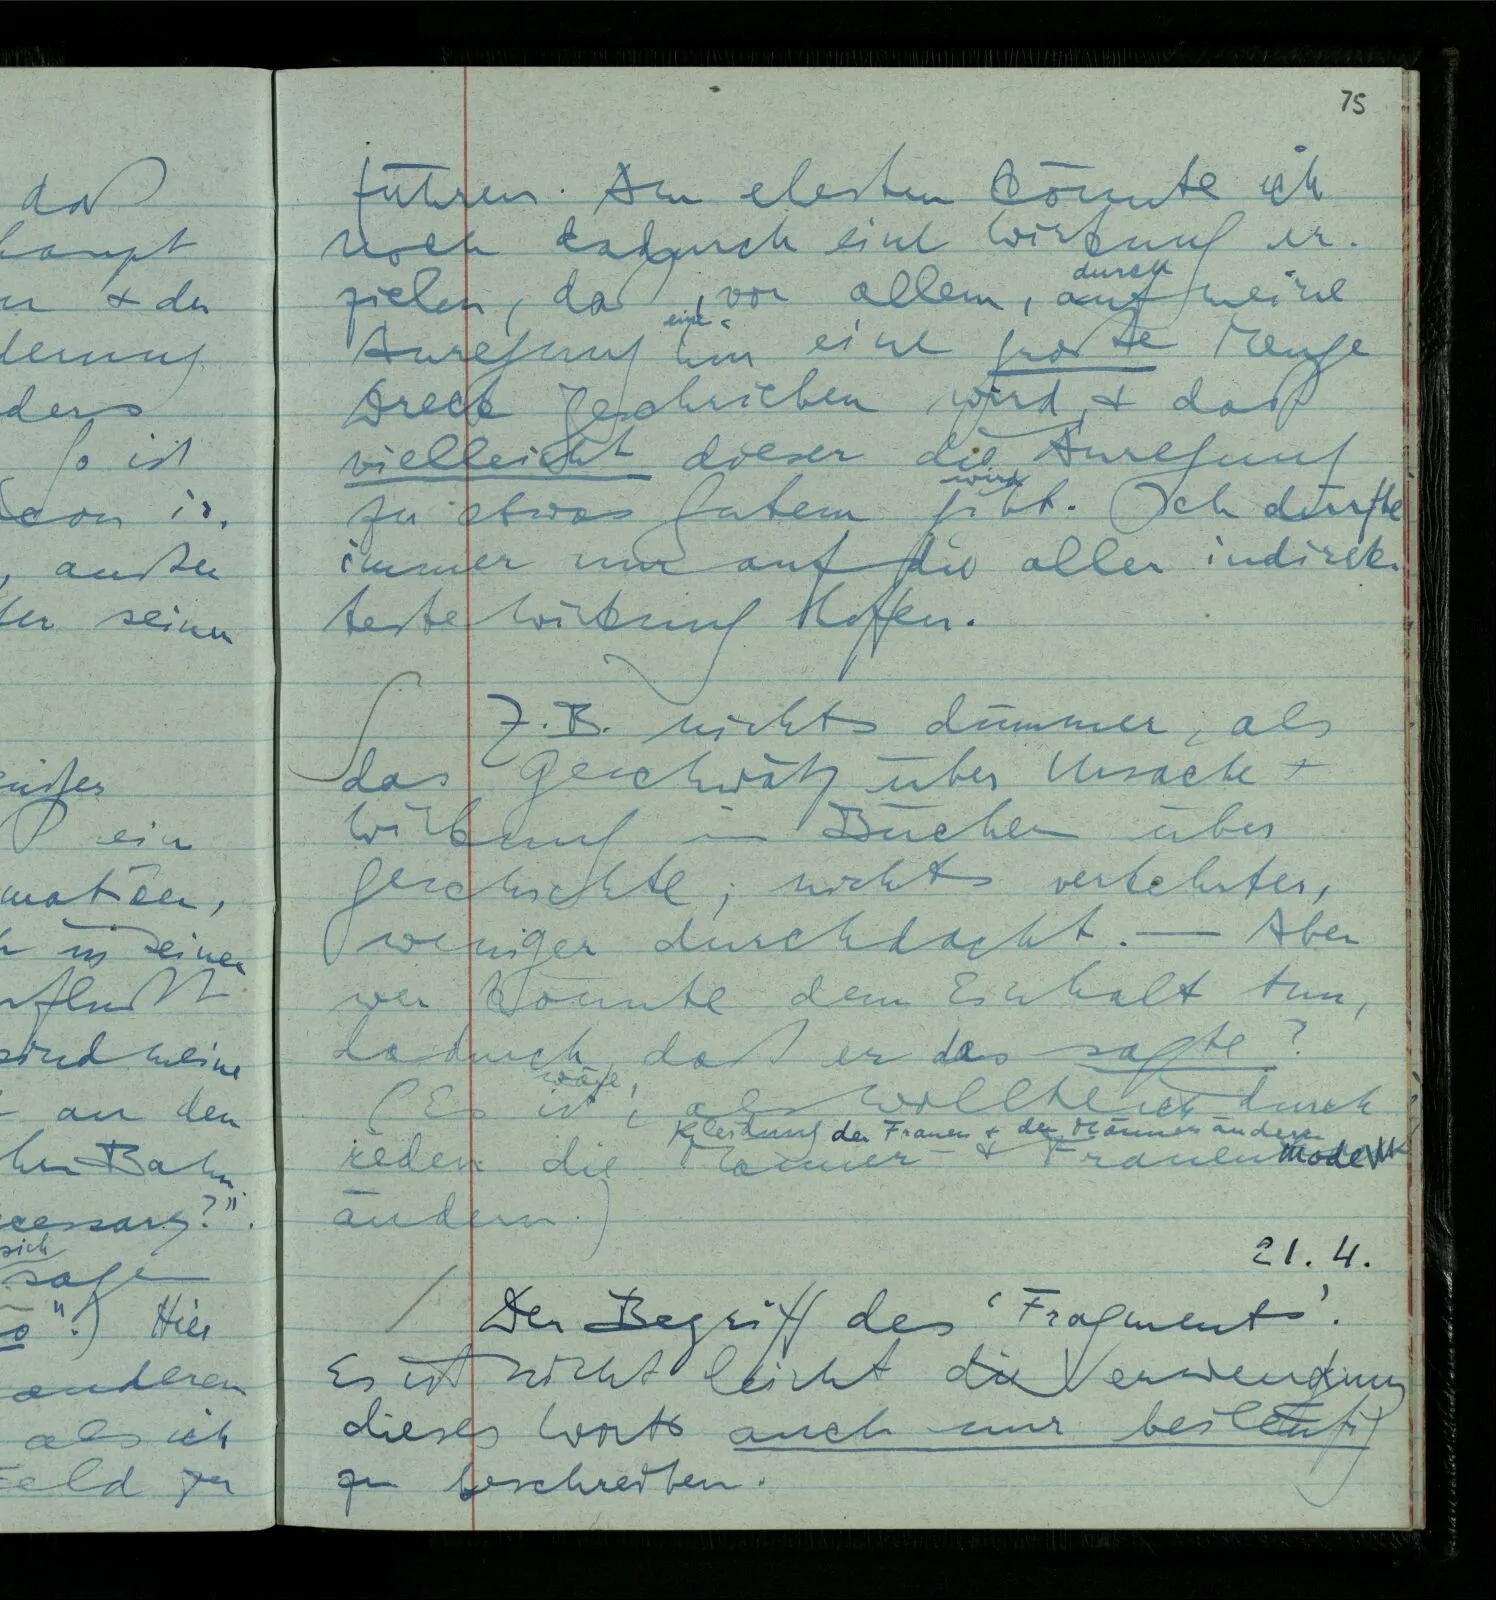 75
daß
haupt
er + der
derung
ders
so ist
außer
ter seinen
ein
h in seinen
sind meine
an den
Bahn
necessary?".
sich
sage
".) Hier
anderen
als ich
Feld zu
führen. Am ehesten könnte ich
noch dadurch eine Wirkung er-
durch
zielen, daß, vor allem, auf meine
Anregung hin eine große Menge
Dreck geschrieben wird, + daß
vielleicht dieser die Anregung
wird
zu etwas Gutem gibt. Ich dürfte
immer nur auf die aller indirek-
teste Wirkung hoffen.
Z.B. nichts dümmer, als
das Geschwätz über Ursache +
Wirkung in Büchern über
Geschichte; nichts verkehrter,
weniger durchdacht. — Aber
wer könnte dem Einhalt tun,
dadurch, daß er das sagte?
wäre,
(Es ist, als wollte ich durch
Kleidung der Frauen + der Männer ändern
reden die Männer- + Frauenmode
ändern.)
21.4.
/ Der Begriff des 'Fragments'.
Es ist nicht leicht die Verwendung
dieses Worts auch nur beiläufig
zu beschreiben.